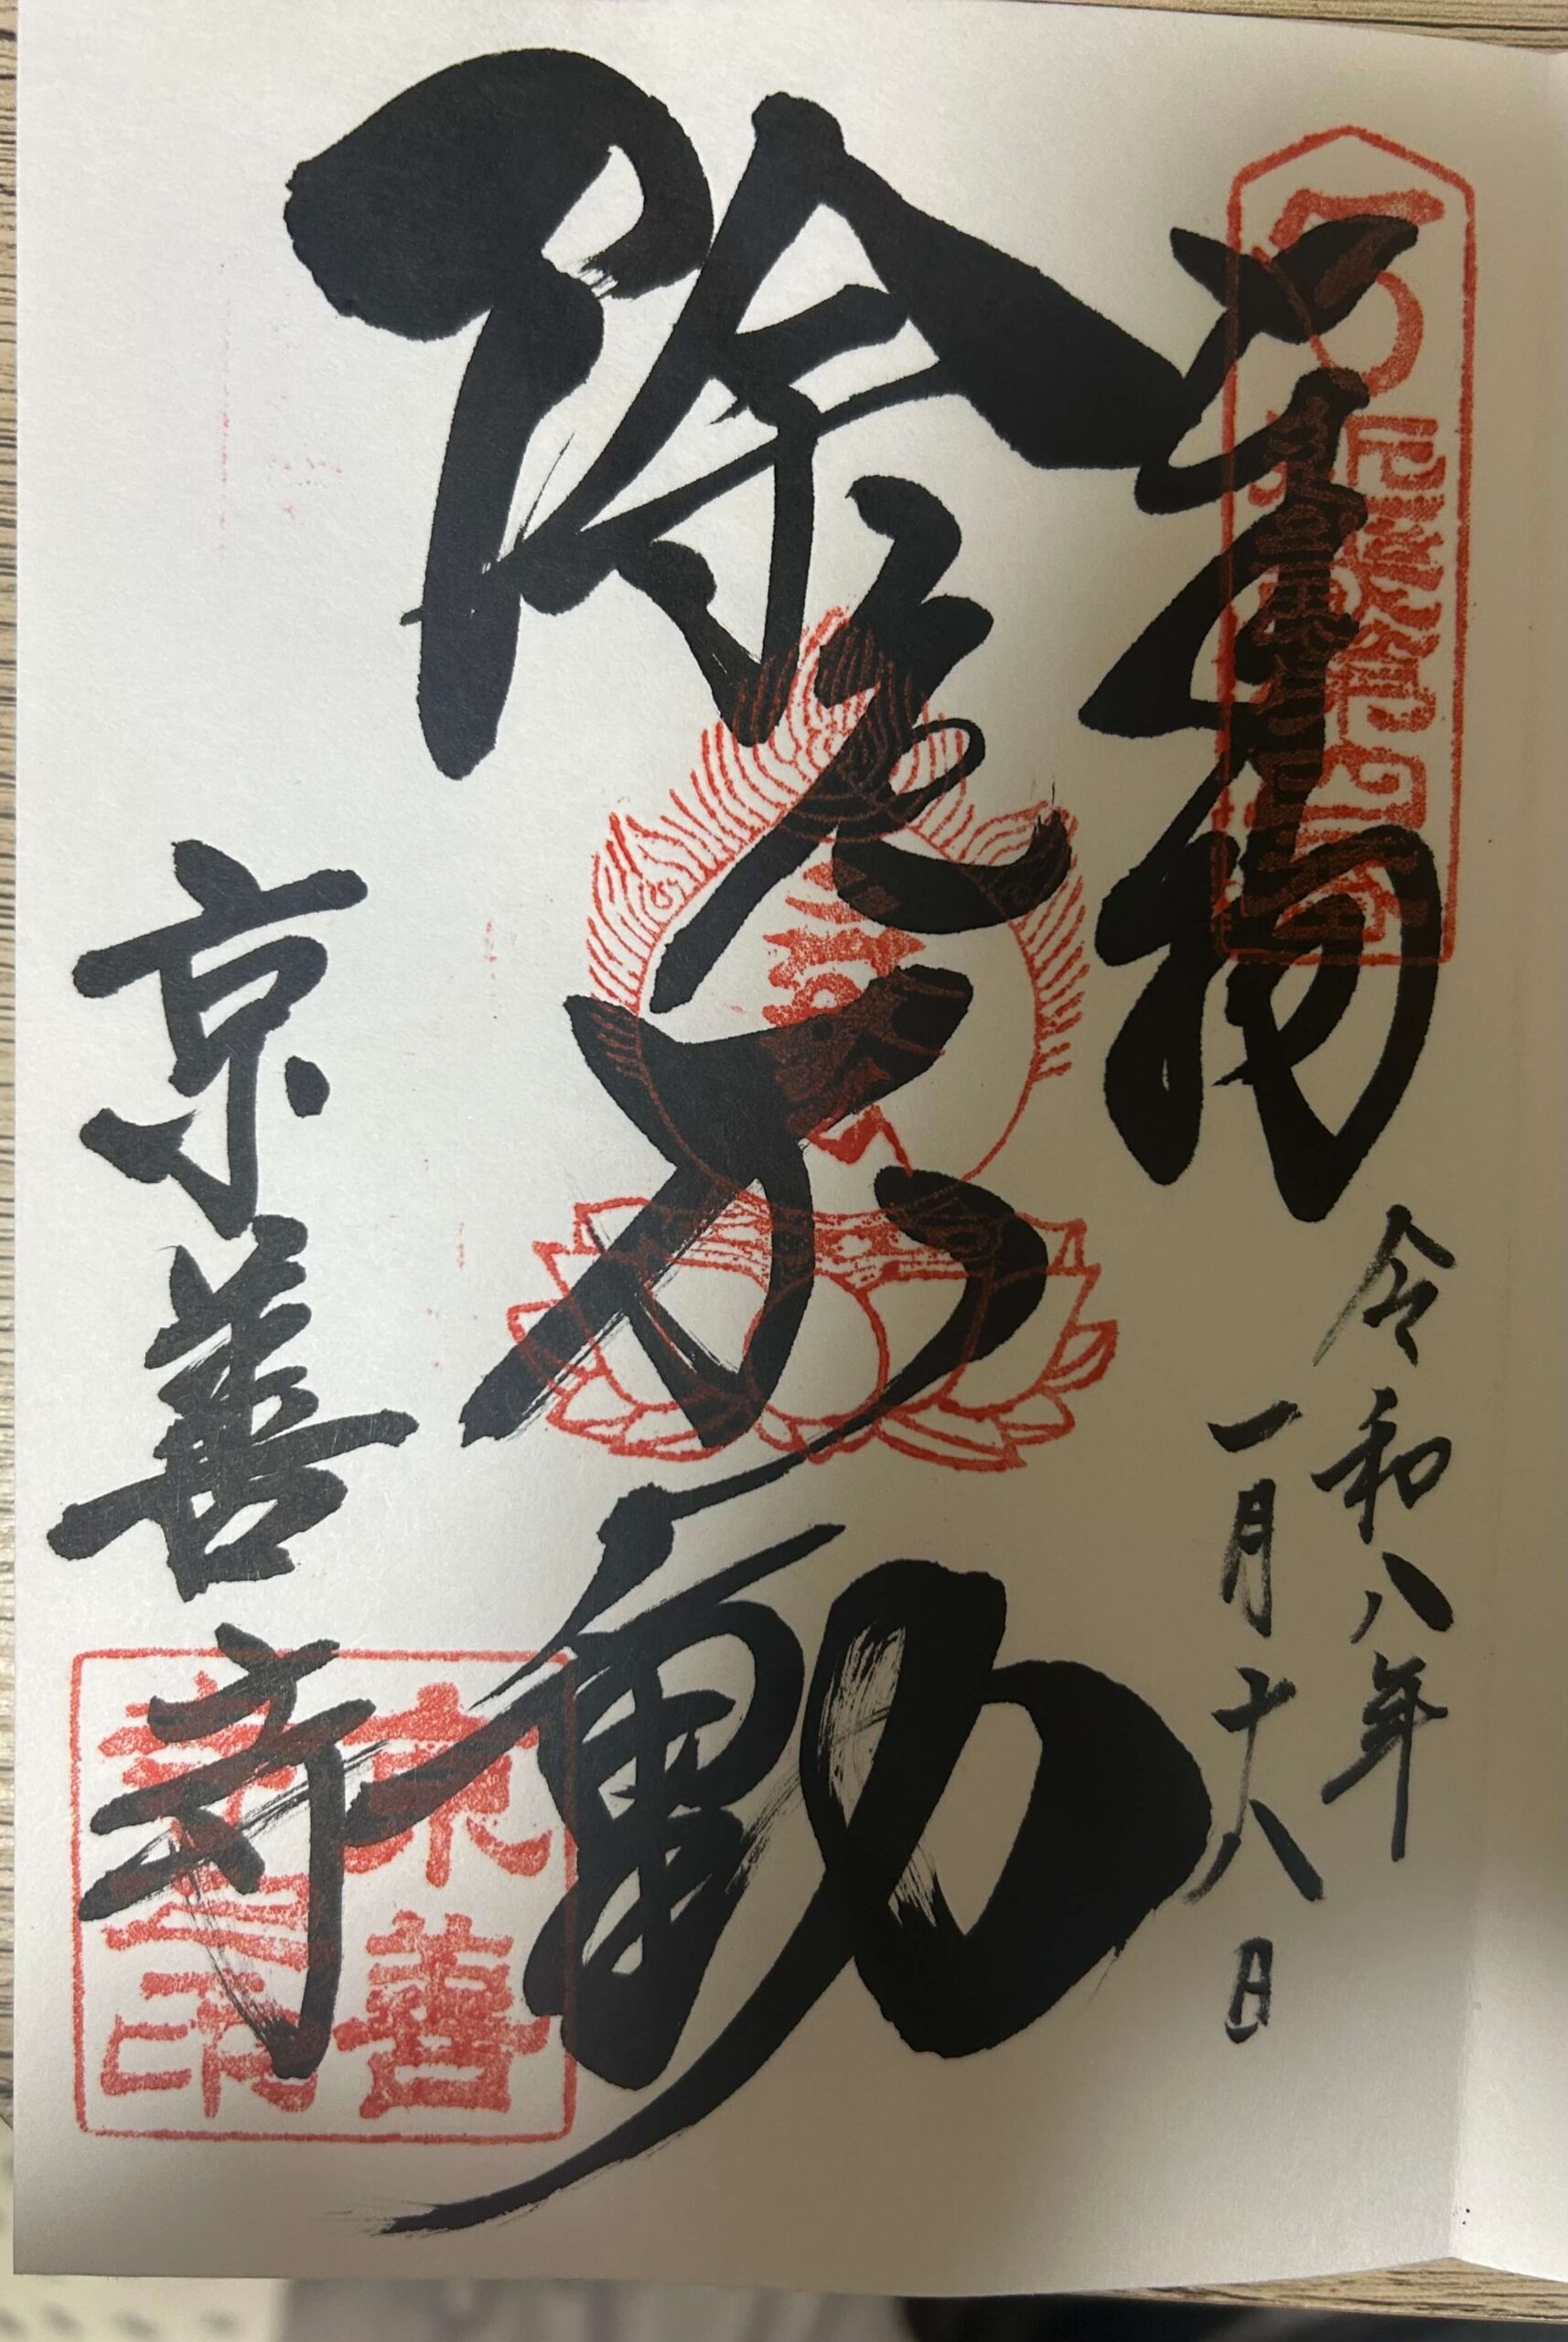 奉拝
令和八年
一月十八日
除厄不動
京善寺
京善
寺之印